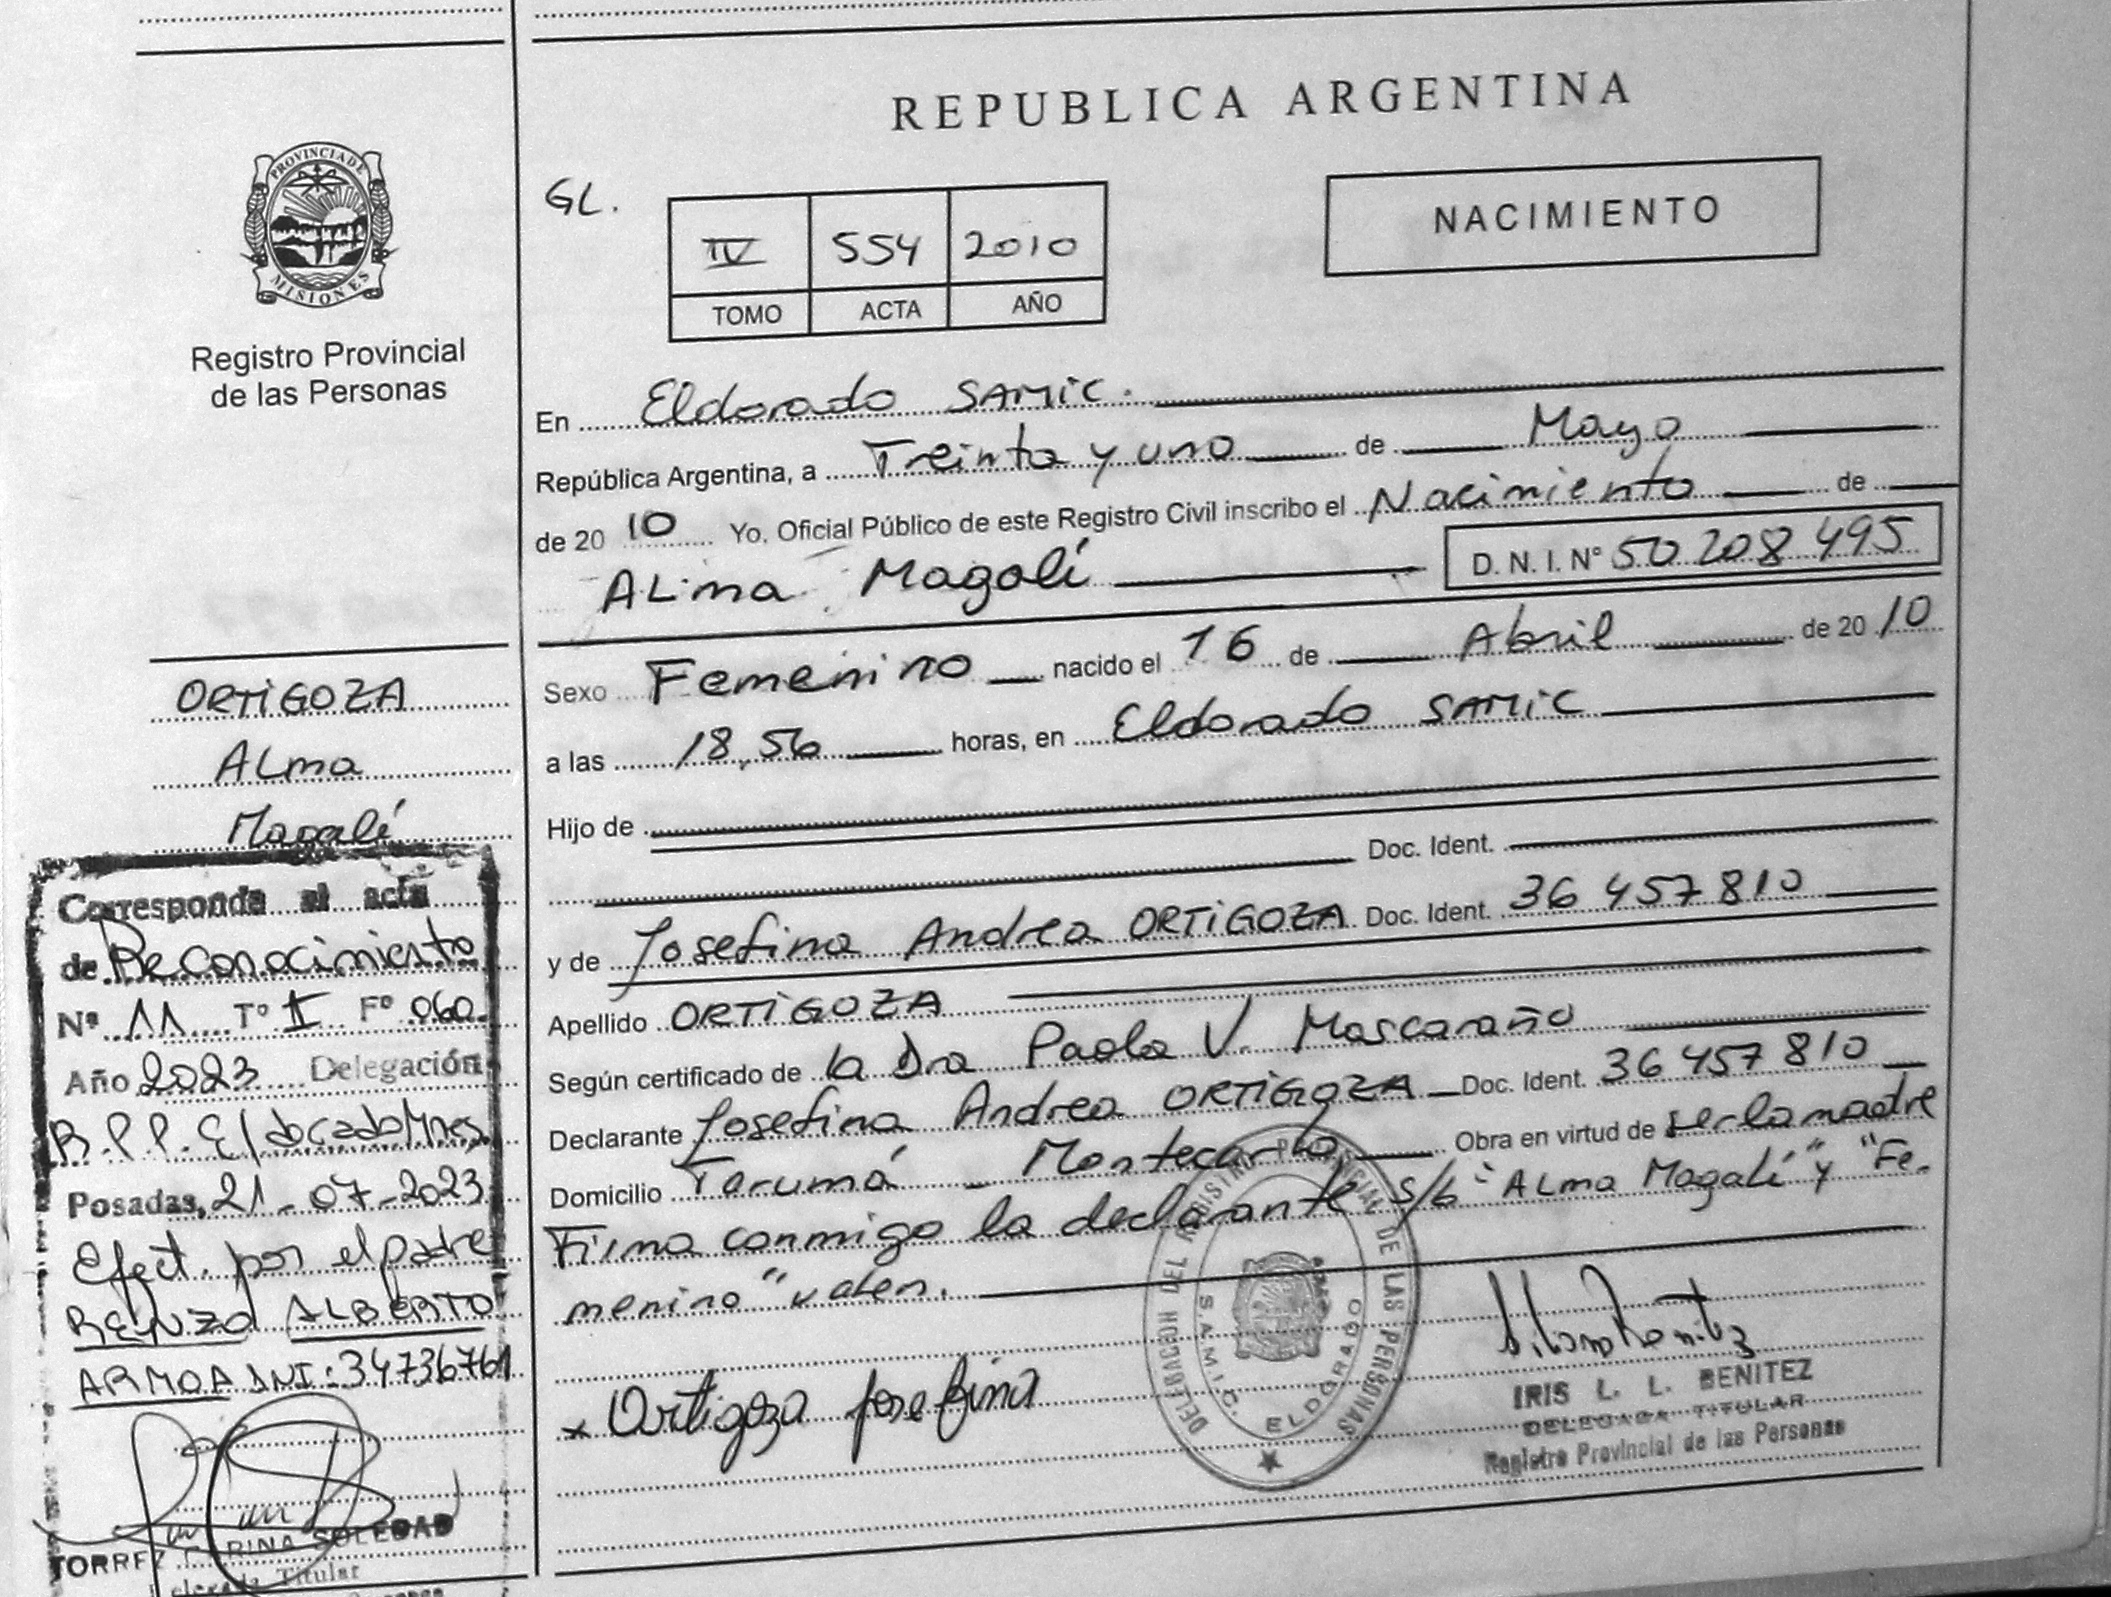 REPUBLICA ARGENTINA
PROVINCIA DE
MISIONES
Registro Provincial
de las Personas
GL.
IV 554 2010
TOMO ACTA AÑO
NACIMIENTO
En Eldorado SAMIC.
República Argentina, a Treinta y uno de Mayo
de 2010 Yo, Oficial Público de este Registro Civil inscribo el Nacimiento de
ALma Magalí D. N. I. N° 50 208 495
Sexo Femenino nacido el 16 de Abril de 2010
a las 18,56 horas, en Eldorado SAMIC
Hijo de
Doc. Ident.
y de Josefina Andrea ORTIGOZA Doc. Ident. 36 457 810
Apellido ORTIGOZA
Según certificado de la Dra Paola V. Mascaraño
Declarante Josefina Andrea ORTIGOZA Doc. Ident. 36 457 810
Domicilio Tarumá - Montecarlo Obra en virtud de ser la madre
Firma conmigo la declarante s/b "ALma Magalí" y "Fe-
menino" valen.
x Ortigoza Josefina
DELEGACION DEL REGISTRO PROVINCIAL DE LAS PERSONAS
S.A.M.I.C. ELDORADO
IRIS L. L. BENITEZ
DELEGADA TITULAR
Registro Provincial de las Personas
ORTIGOZA
ALma
Magalí
Corresponde al acta
de Reconocimiento
Nº 11 Tº I Fº 060
Año 2023 Delegación
R.P.P. Eldorado Mnes.
Posadas, 21-07-2023
Efect. por el padre
REYNZO ALBERTO
ARMOA DNI: 34736761
TORREZ SOLEDAD
Delegada Titular